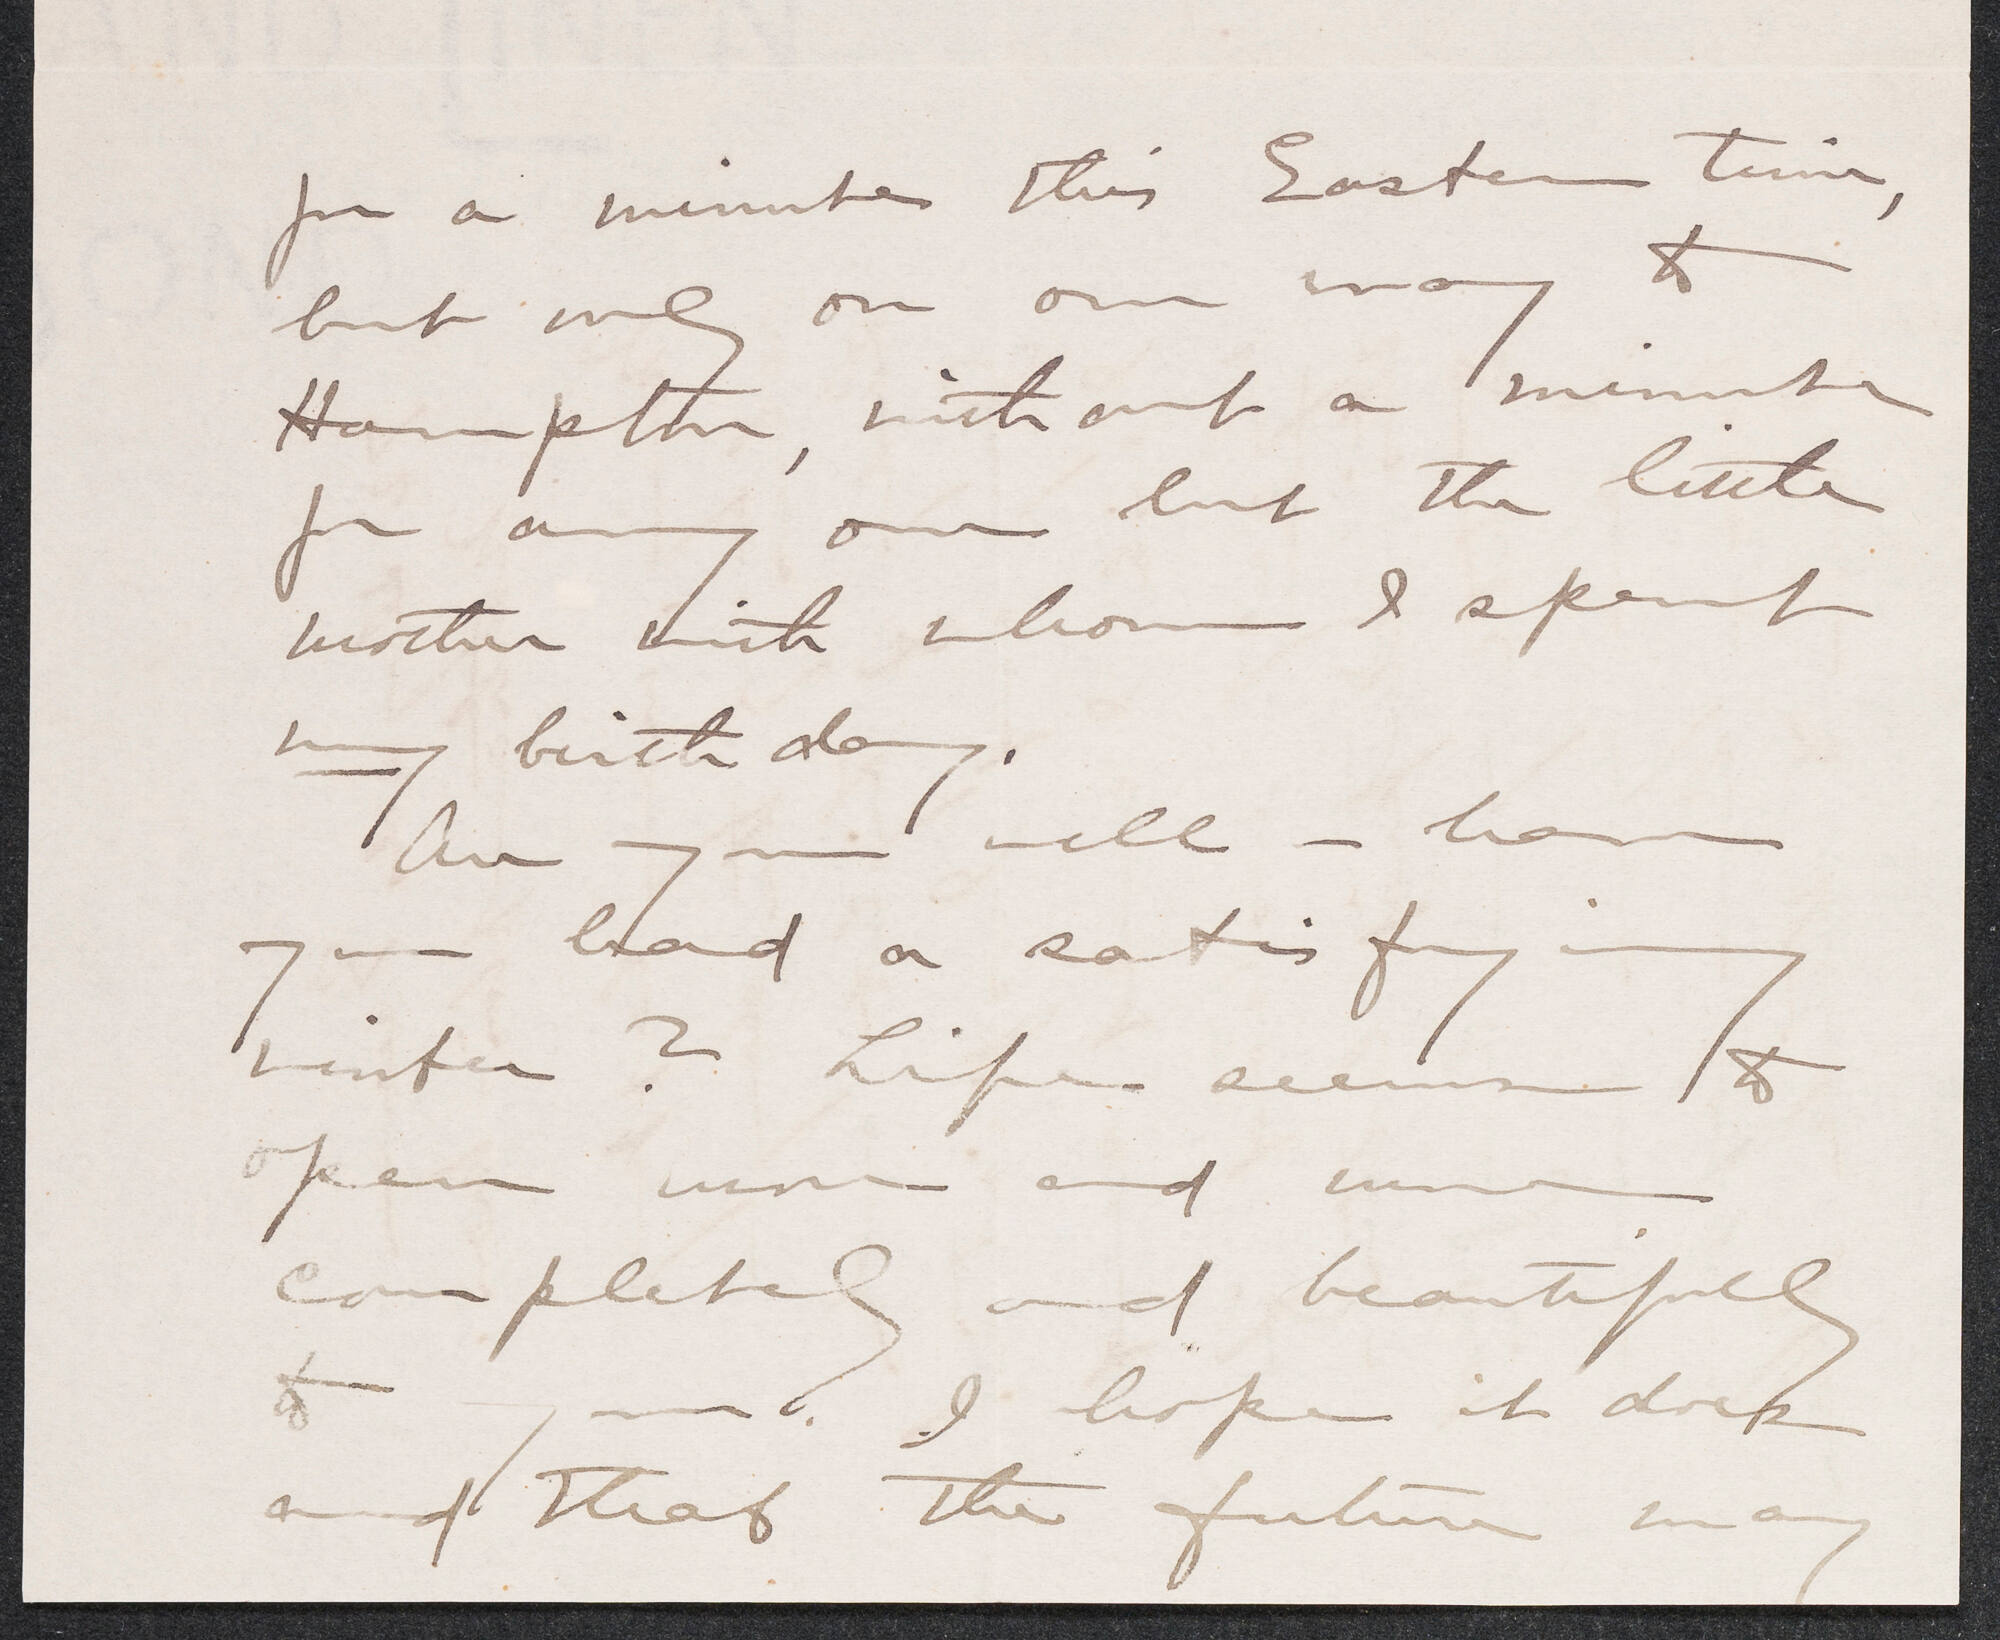 for a minute this Easter time,
but only on our way to
Hampton, without a minute
for any one but the little
mother with whom I spent
my birthday.
Are you well – have
you had a satisfying
winter? Life seems to
open more and more
completely and beautifully
to you. I hope it does
and that the future may